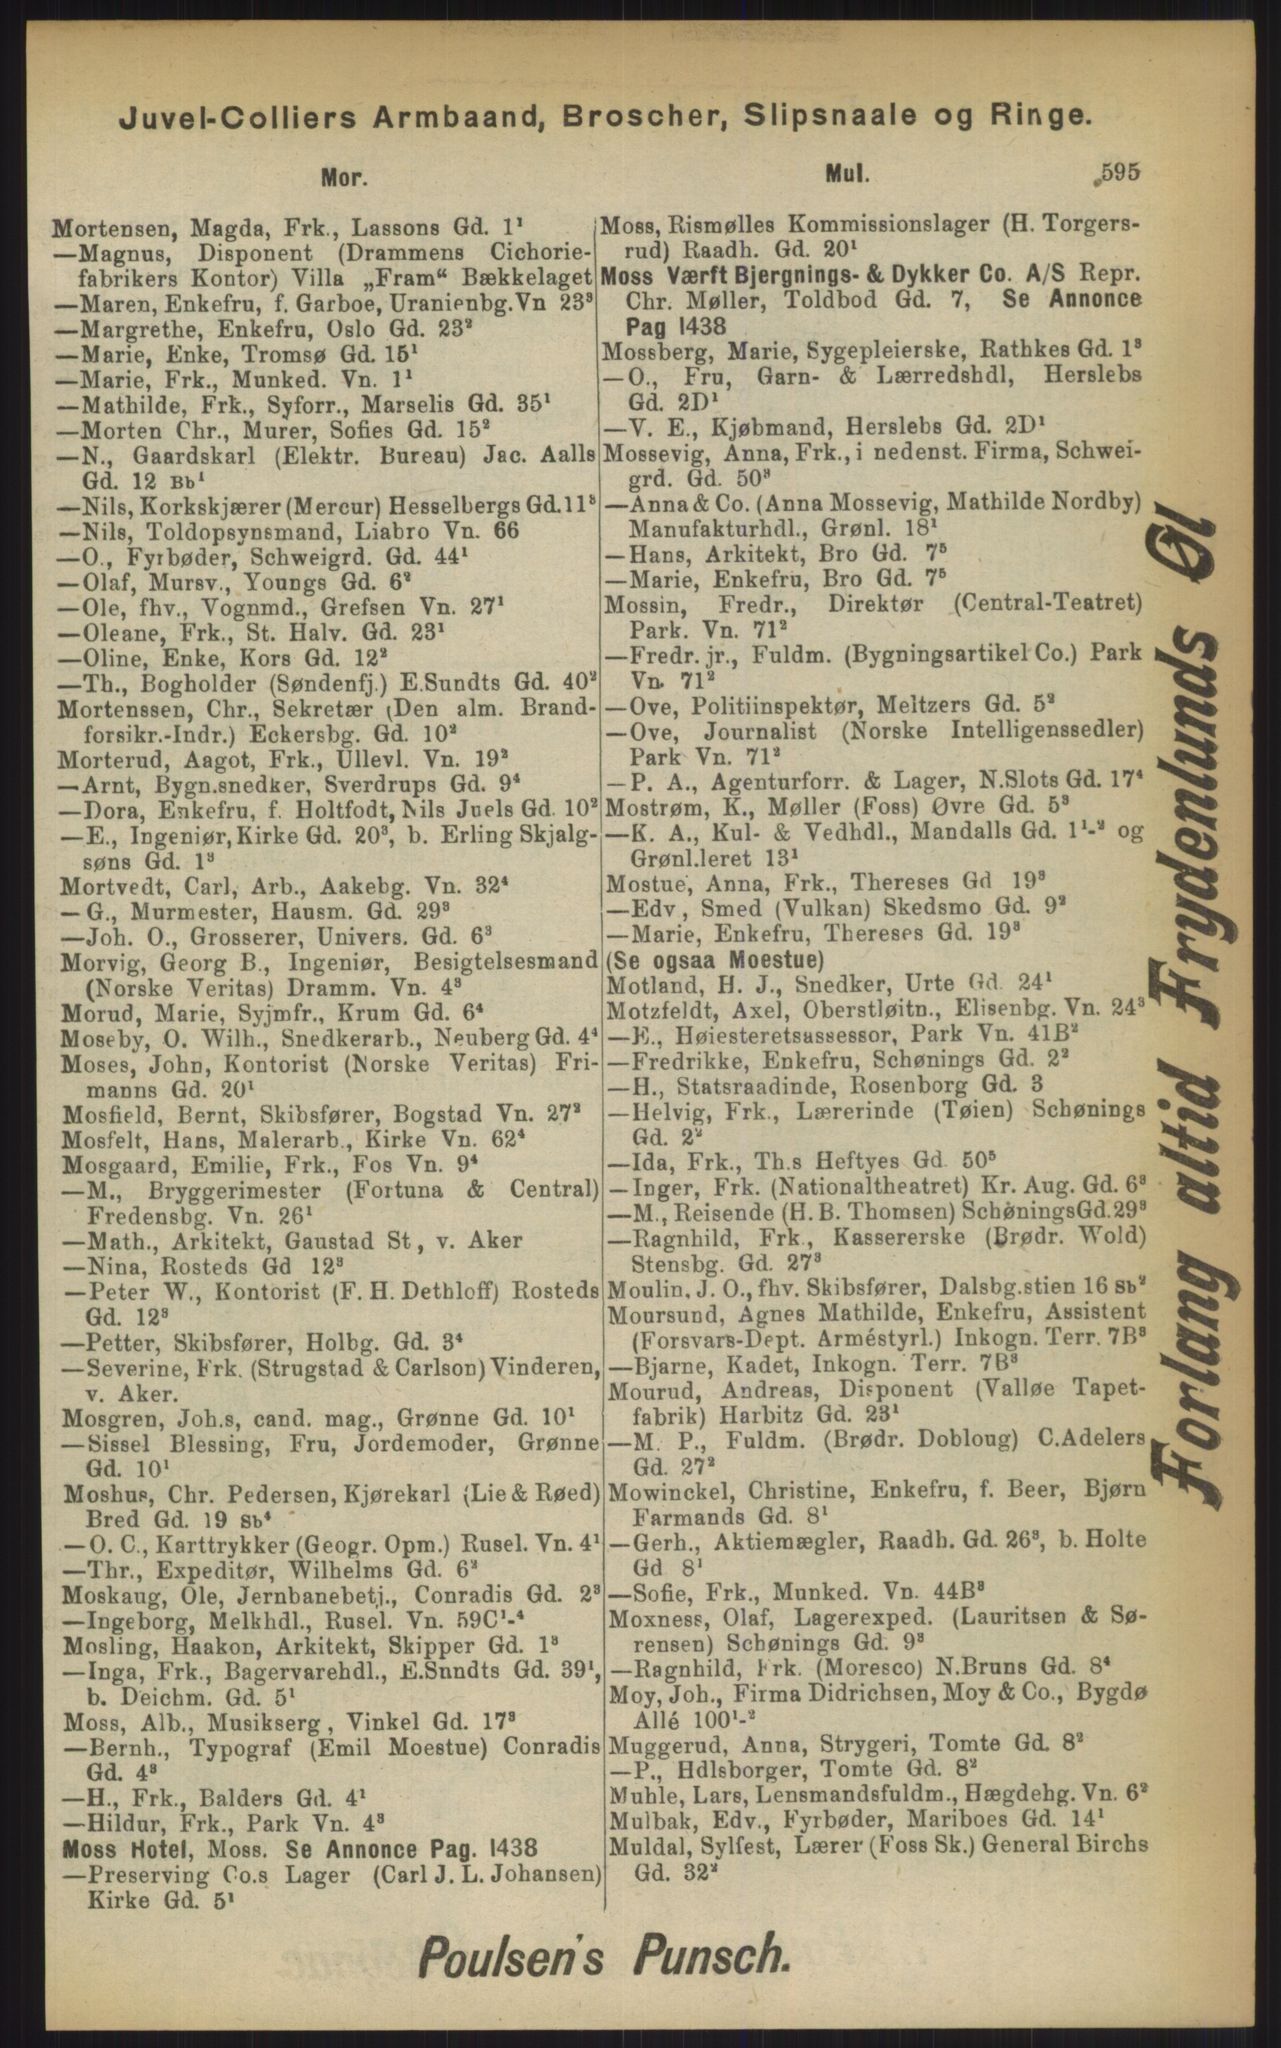 Juvel-Colliers Armbaand, Broscher, Slipsnaale og Ringe.
Mor.
Mul.
595
Mortensen, Magda, Frk., Lassons Gd. 1¹
—Magnus, Disponent (Drammens Cichorie-
fabrikers Kontor) Villa „Fram“ Bækkelaget
—Maren, Enkefru, f. Garboe, Uranienbg.Vn 23³
—Margrethe, Enkefru, Oslo Gd. 23²
—Marie, Enke, Tromsø Gd. 15¹
—Marie, Frk., Munked. Vn. 1¹
—Mathilde, Frk., Syforr., Marselis Gd. 35¹
—Morten Chr., Murer, Sofies Gd. 15²
—N., Gaardskarl (Elektr. Bureau) Jac. Aalls
Gd. 12 Bb¹
—Nils, Korkskjærer (Mercur) Hesselbergs Gd. 11³
—Nils, Toldopsynsmand, Liabro Vn. 66
—O., Fyrbøder, Schweigrd. Gd. 44¹
—Olaf, Mursv., Youngs Gd. 6²
—Ole, fhv., Vognmd., Grefsen Vn. 27¹
—Oleane, Frk., St. Halv. Gd. 23¹
—Oline, Enke, Kors Gd. 12²
—Th., Bogholder (Søndenfj.) E.Sundts Gd. 40²
Mortenssen, Chr., Sekretær (Den alm. Brand-
forsikr.-Indr.) Eckersbg. Gd. 10²
Morterud, Aagot, Frk., Ullevl. Vn. 19²
—Arnt, Bygn.snedker, Sverdrups Gd. 9⁴
—Dora, Enkefru, f. Holtfodt, Nils Juels Gd. 10²
—E., Ingeniør, Kirke Gd. 20³, b. Erling Skjalg-
søns Gd. 1³
Mortvedt, Carl, Arb., Aakebg. Vn. 32⁴
—G., Murmester, Hausm. Gd. 29³
—Joh. O., Grosserer, Univers. Gd. 6³
Morvig, Georg B., Ingeniør, Besigtelsesmand
(Norske Veritas) Dramm. Vn. 4³
Morud, Marie, Syjmfr., Krum Gd. 6⁴
Moseby, O. Wilh., Snedkerarb., Neuberg Gd. 4⁴
Moses, John, Kontorist (Norske Veritas) Fri-
manns Gd. 20¹
Mosfield, Bernt, Skibsfører, Bogstad Vn. 27²
Mosfelt, Hans, Malerarb., Kirke Vn. 62⁴
Mosgaard, Emilie, Frk., Fos Vn. 9⁴
—M., Bryggerimester (Fortuna & Central)
Fredensbg. Vn. 26¹
—Math., Arkitekt, Gaustad St, v. Aker
—Nina, Rosteds Gd 12³
—Peter W., Kontorist (F. H. Dethloff) Rosteds
Gd. 12³
—Petter, Skibsfører, Holbg. Gd. 3⁴
—Severine, Frk. (Strugstad & Carlson) Vinderen,
v. Aker.
Mosgren, Joh.s, cand. mag., Grønne Gd. 10¹
—Sissel Blessing, Fru, Jordemoder, Grønne
Gd. 10¹
Moshus, Chr. Pedersen, Kjørekarl (Lie & Røed)
Bred Gd. 19 Sb⁴
—O. C., Karttrykker (Geogr. Opm.) Rusel. Vn. 4¹
—Thr., Expeditør, Wilhelms Gd. 6²
Moskaug, Ole, Jernbanebetj., Conradis Gd. 2³
—Ingeborg, Melkhdl., Rusel. Vn. 59C¹-⁴
Mosling, Haakon, Arkitekt, Skipper Gd. 1³
—Inga, Frk., Bagervarehdl., E.Snndts Gd. 39¹,
b. Deichm. Gd. 5¹
Moss, Alb., Musikserg, Vinkel Gd. 17³
—Bernh., Typograf (Emil Moestue) Conradis
Gd. 4³
—H., Frk., Balders Gd. 4¹
—Hildur, Frk., Park Vn. 4³
Moss Hotel, Moss. Se Annonce Pag. 1438
—Preserving Co.s Lager (Carl J. L. Johansen)
Kirke Gd. 5¹
Moss, Rismølles Kommissionslager (H. Torgers-
rud) Raadh. Gd. 20¹
Moss Værft Bjergnings- & Dykker Co. A/S Repr.
Chr. Møller, Toldbod Gd. 7, Se Annonce
Pag 1438
Mossberg, Marie, Sygepleierske, Rathkes Gd. 1³
—O., Fru, Garn- & Lærredshdl, Herslebs
Gd. 2D¹
—V. E., Kjøbmand, Herslebs Gd. 2D¹
Mossevig, Anna, Frk., i nedenst. Firma, Schwei-
grd. Gd. 50³
—Anna & Co. (Anna Mossevig, Mathilde Nordby)
Manufakturhdl., Grønl. 18¹
—Hans, Arkitekt, Bro Gd. 7⁵
—Marie, Enkefru, Bro Gd. 7⁵
Mossin, Fredr., Direktør (Central-Teatret)
Park. Vn. 71²
—Fredr. jr., Fuldm. (Bygningsartikel Co.) Park
Vn. 71²
—Ove, Politiinspektør, Meltzers Gd. 5²
—Ove, Journalist (Norske Intelligenssedler)
Park Vn. 71²
—P. A., Agenturforr. & Lager, N.Slots Gd. 17⁴
Mostrøm, K., Møller (Foss) Øvre Gd. 5³
—K. A., Kul- & Vedhdl., Mandalls Gd. 1¹-² og
Grønl.leret 13¹
Mostue, Anna, Frk., Thereses Gd 19³
—Edv, Smed (Vulkan) Skedsmo Gd. 9²
—Marie, Enkefru, Thereses Gd. 19³
(Se ogsaa Moestue)
Motland, H. J., Snedker, Urte Gd. 24¹
Motzfeldt, Axel, Oberstløitn., Elisenbg. Vn. 24³
—E., Høiesteretsassessor, Park Vn. 41B²
—Fredrikke, Enkefru, Schønings Gd. 2²
—H., Statsraadinde, Rosenborg Gd. 3
—Helvig, Frk., Lærerinde (Tøien) Schønings
Gd. 2²
—Ida, Frk., Th.s Heftyes Gd. 50⁵
—Inger, Frk. (Nationaltheatret) Kr. Aug. Gd. 6³
—M., Reisende (H. B. Thomsen) Schønings Gd. 29³
—Ragnhild, Frk., Kassererske (Brødr. Wold)
Stensbg. Gd. 27³
Moulin, J. O., fhv. Skibsfører, Dalsbg.stien 16 Sb²
Moursund, Agnes Mathilde, Enkefru, Assistent
(Forsvars-Dept. Arméstyrl.) Inkogn. Terr. 7B³
—Bjarne, Kadet, Inkogn. Terr. 7B³
Mourud, Andreas, Disponent (Valløe Tapet-
fabrik) Harbitz Gd. 23¹
—M. P., Fuldm. (Brødr. Dobloug) C.Adelers
Gd. 27²
Mowinckel, Christine, Enkefru, f. Beer, Bjørn
Farmands Gd. 8¹
—Gerh., Aktiemægler, Raadh. Gd. 26³, b. Holte
Gd 8¹
—Sofie, Frk., Munked. Vn. 44B³
Moxness, Olaf, Lagerexped. (Lauritsen & Sø-
rensen) Schønings Gd. 9³
—Ragnhild, Frk. (Moresco) N.Bruns Gd. 8⁴
Moy, Joh., Firma Didrichsen, Moy & Co., Bygdø
Allé 100¹-²
Muggerud, Anna, Strygeri, Tomte Gd. 8²
—P., Hdlsborger, Tomte Gd. 8²
Muhle, Lars, Lensmandsfuldm., Hægdehg. Vn. 6²
Mulbak, Edv., Fyrbøder, Mariboes Gd. 14¹
Muldal, Sylfest, Lærer (Foss Sk.) General Birchs
Gd. 32²
Forlang altid Frydenlunds Øl
Poulsen's Punsch.